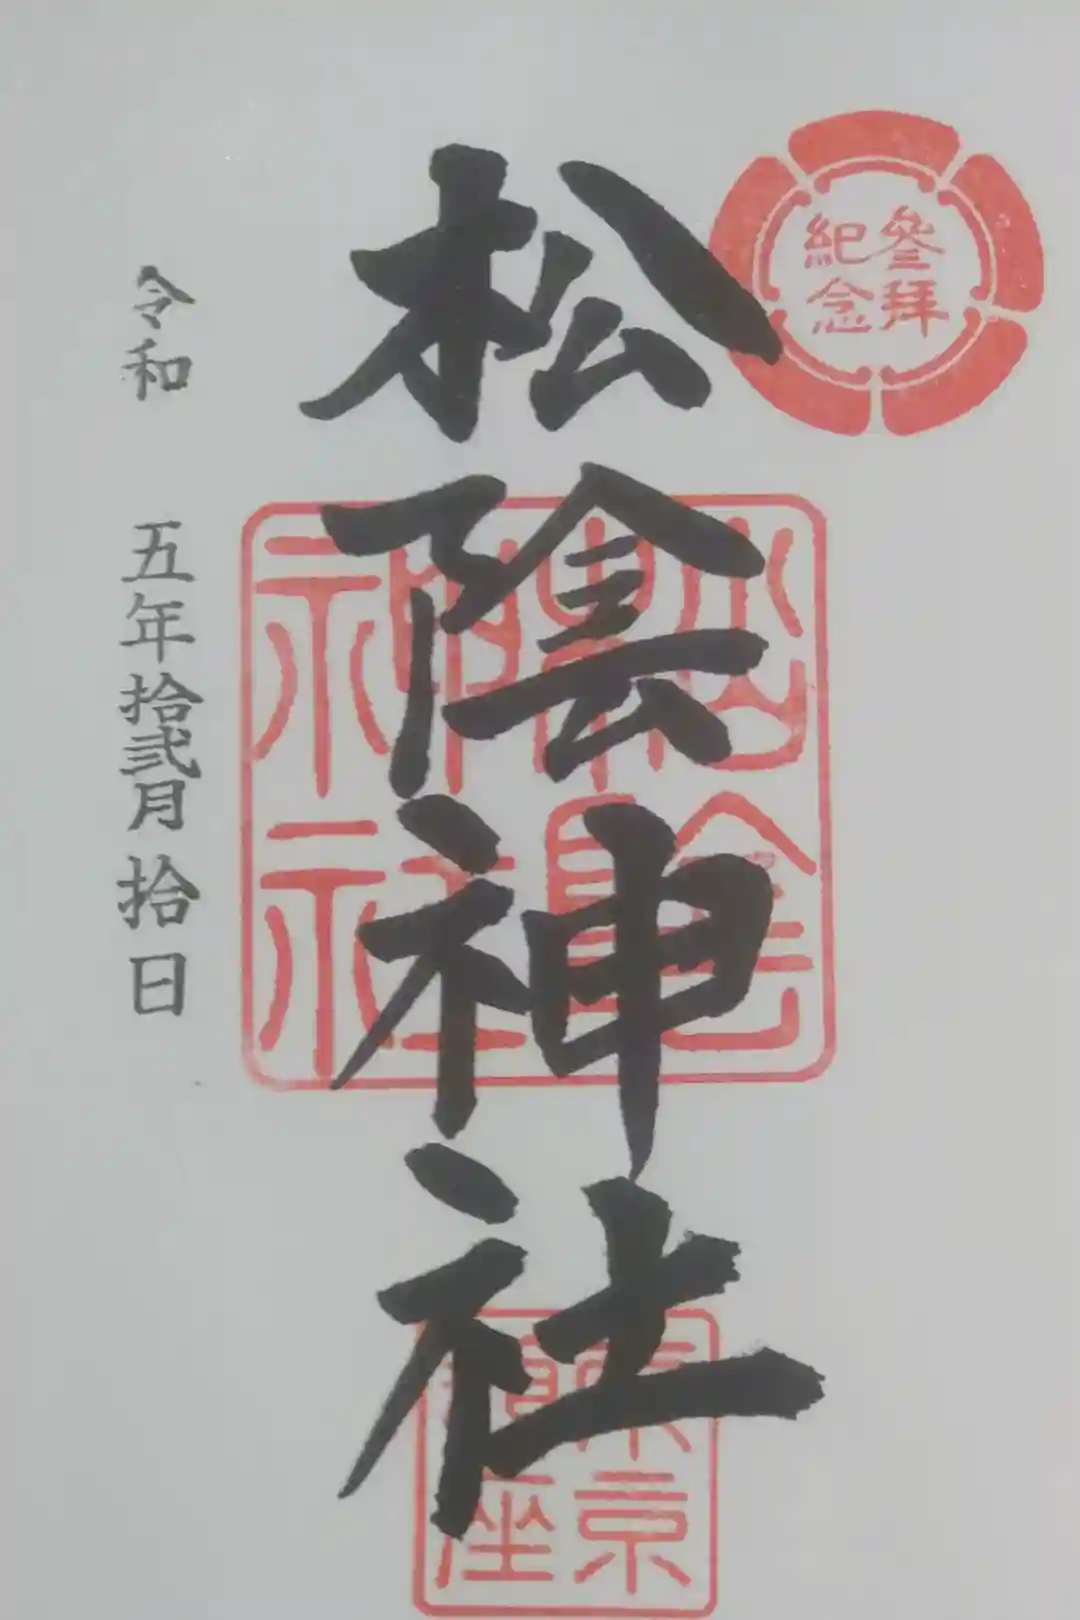 参拜
紀念
松陰神社
松陰
神社
東京
座
令和 五年拾弐月拾日